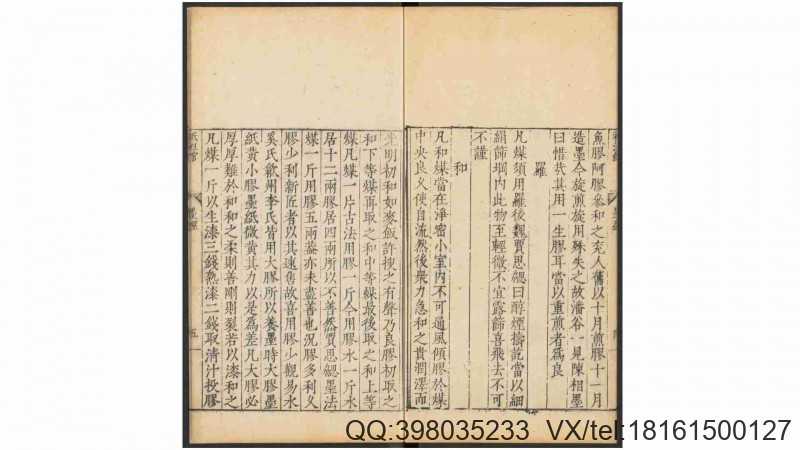 魚膠阿膠參和之兗人舊以十月煎膠十一月
造墨今旋煎旋用殊失之故潘谷一見陳相墨
曰惜哉其用一生膠耳當以重煎者爲良
羅
凡煤須用羅後魏賈思勰曰醇煙擣訖當以細
絹篩堈内此物至輕微不宜露篩喜飛去不可
不謹
和
凡和煤當在净密小室内不可通風傾膠於煤
中央良久使自流然後衆力急和之貴潤澤而
光明初和如麥飯許搜之有聲乃良膠初取之
和下等煤再取之和中等煤最後取之和上等
煤凡煤一斤古法用膠一斤今用膠水一斤水
居十二兩膠居四兩所以不善然賈思勰墨法
煤一斤用膠五兩葢亦未盡善也況膠多利久
膠少利新匠者以其速售故喜用膠少觀易水
奚氏歙州李氏皆用大膠所以養墨時大膠墨
紙黄小膠墨紙微黄其力以是爲差凡大膠必
厚厚難於和和之柔則善剛則裂若以漆和之
凡煤一斤以生漆三錢熟漆二錢取清汁投膠
墨經
五
QQ:398035233 VX/tel:18161500127